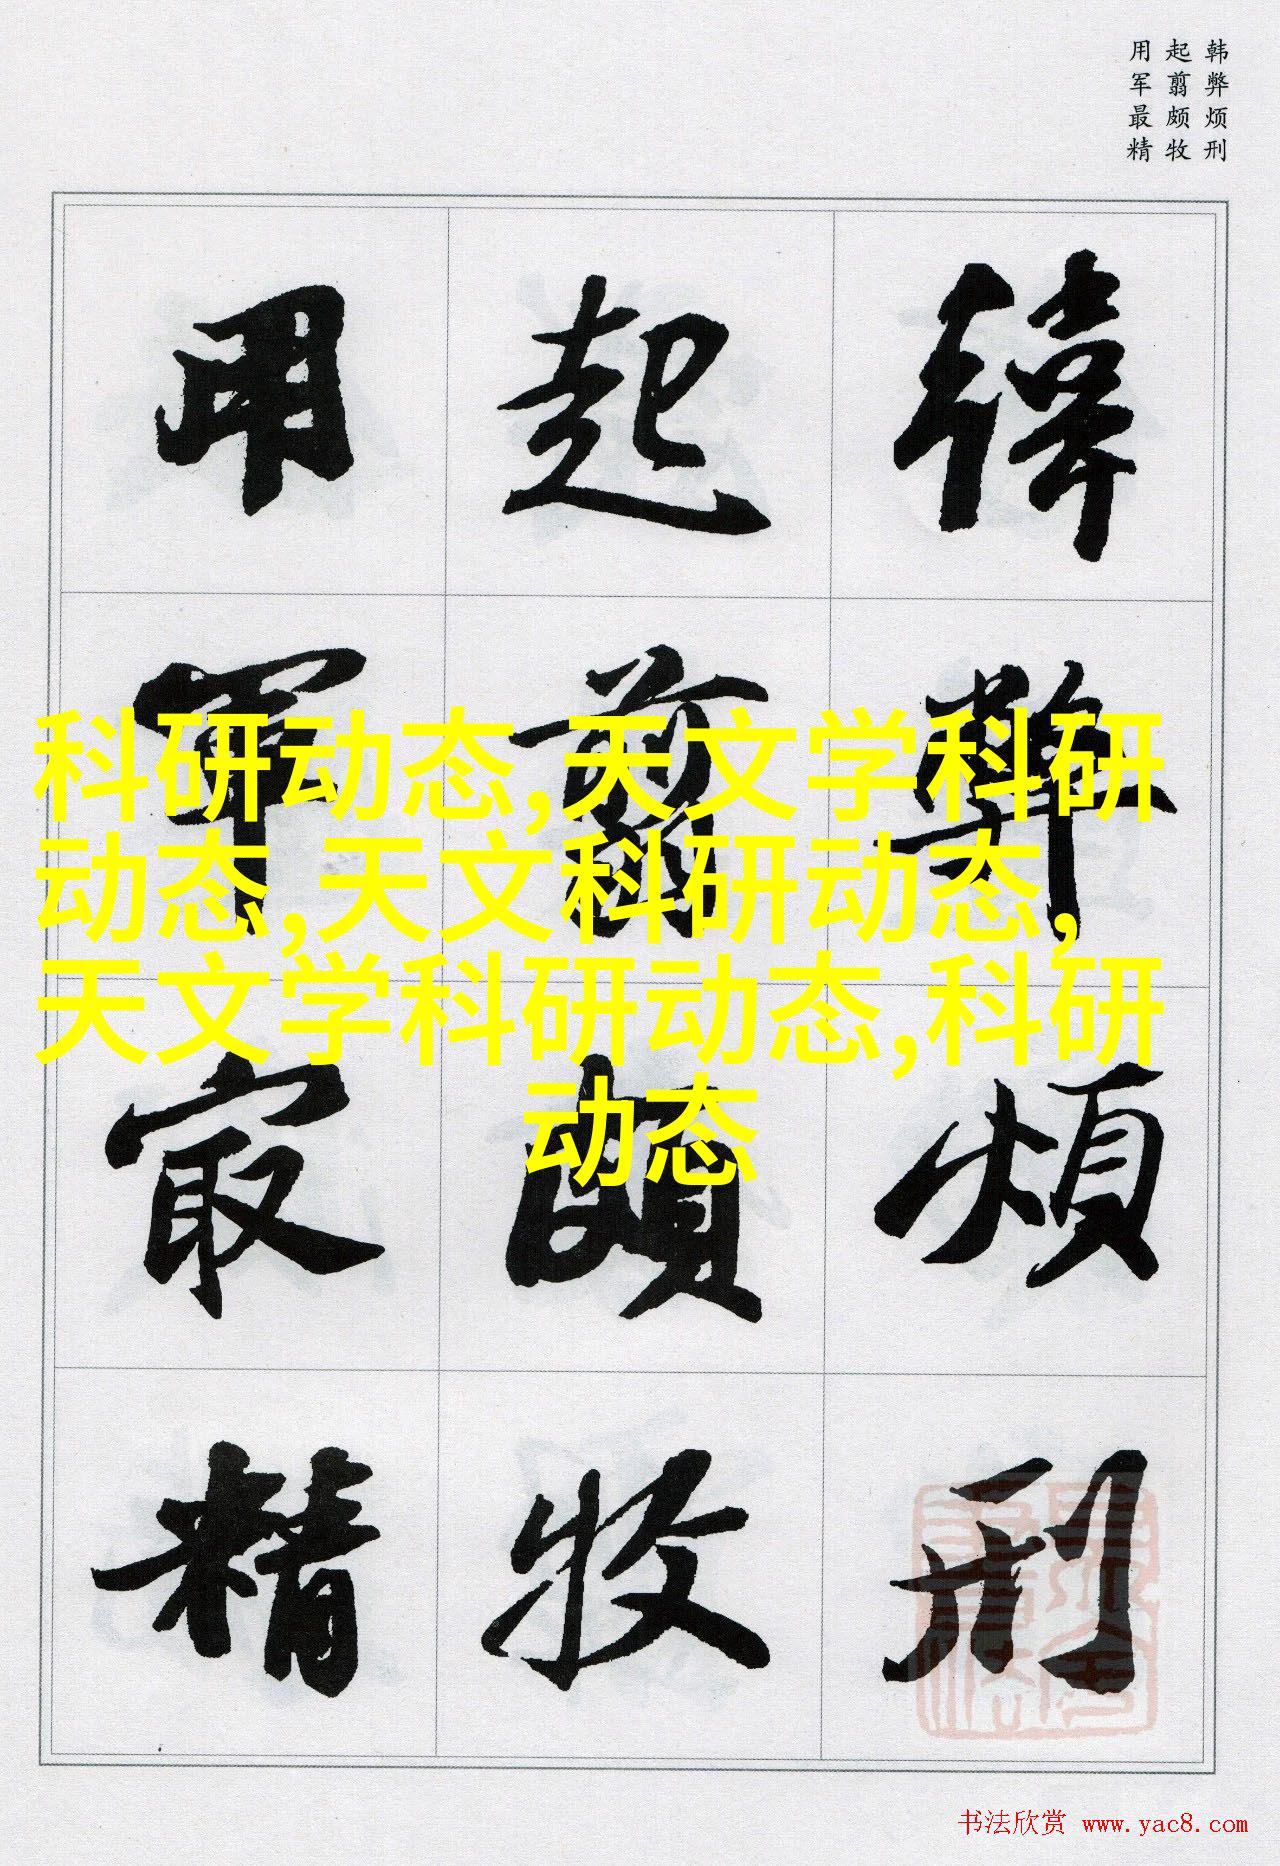 韩弊烦刑
起翦颇牧
用军最精
韩弊烦刑
起翦颇牧
用军最精
科研动态,天文学科研
动态,天文科研动态,
天文学科研动态,科研
动态
书法欣赏 www.yac8.com